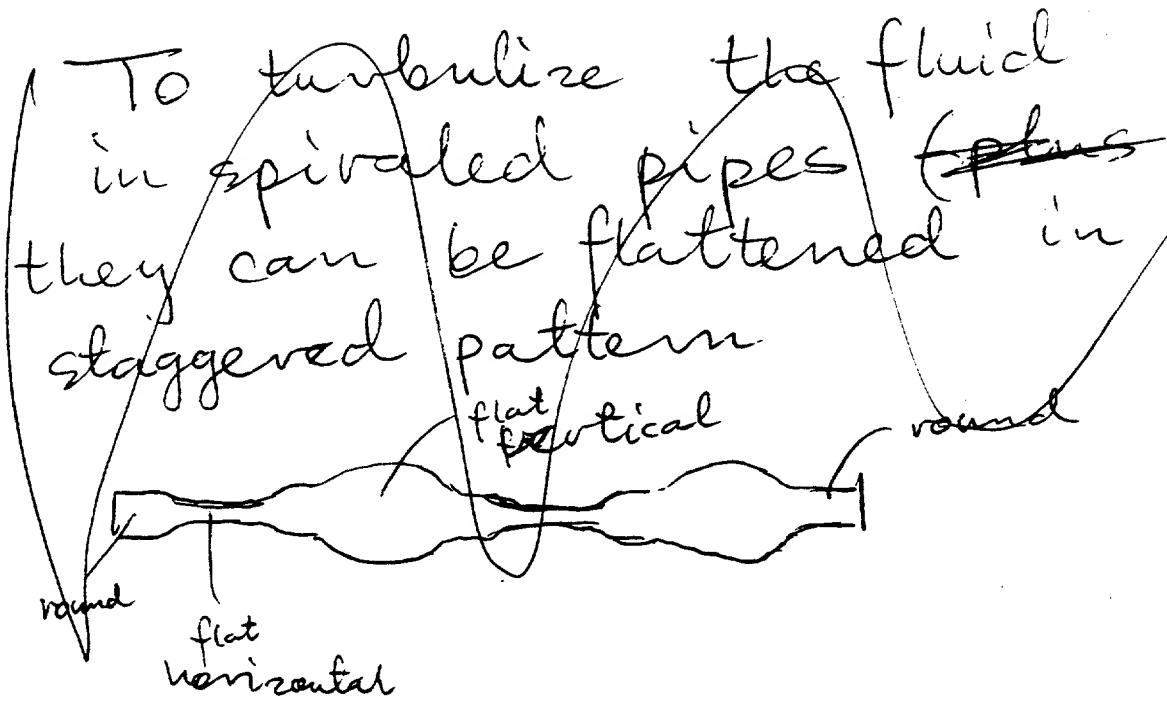 To turbulize the fluid
in spiraled pipes (plus
they can be flattened in
staggered pattern
flat
vertical
round
round
flat
horizontal